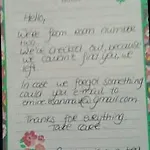 Hello,
We're from room number
two.
We've checked out, because
we couldn't find you, we
left.
In case we forgot something
could you e-mail to
@gmail.com
Thanks for everything
Take care